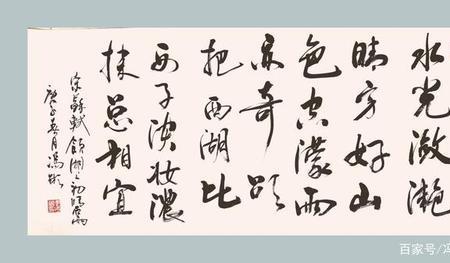 水光潋滟
晴方好山
色空濛雨
亦奇欲
把西湖比
西子淡妆濃
抹总相宜
录蘇轼饮湖上初晴后雨
庚子春月冯彬
百家号/冯